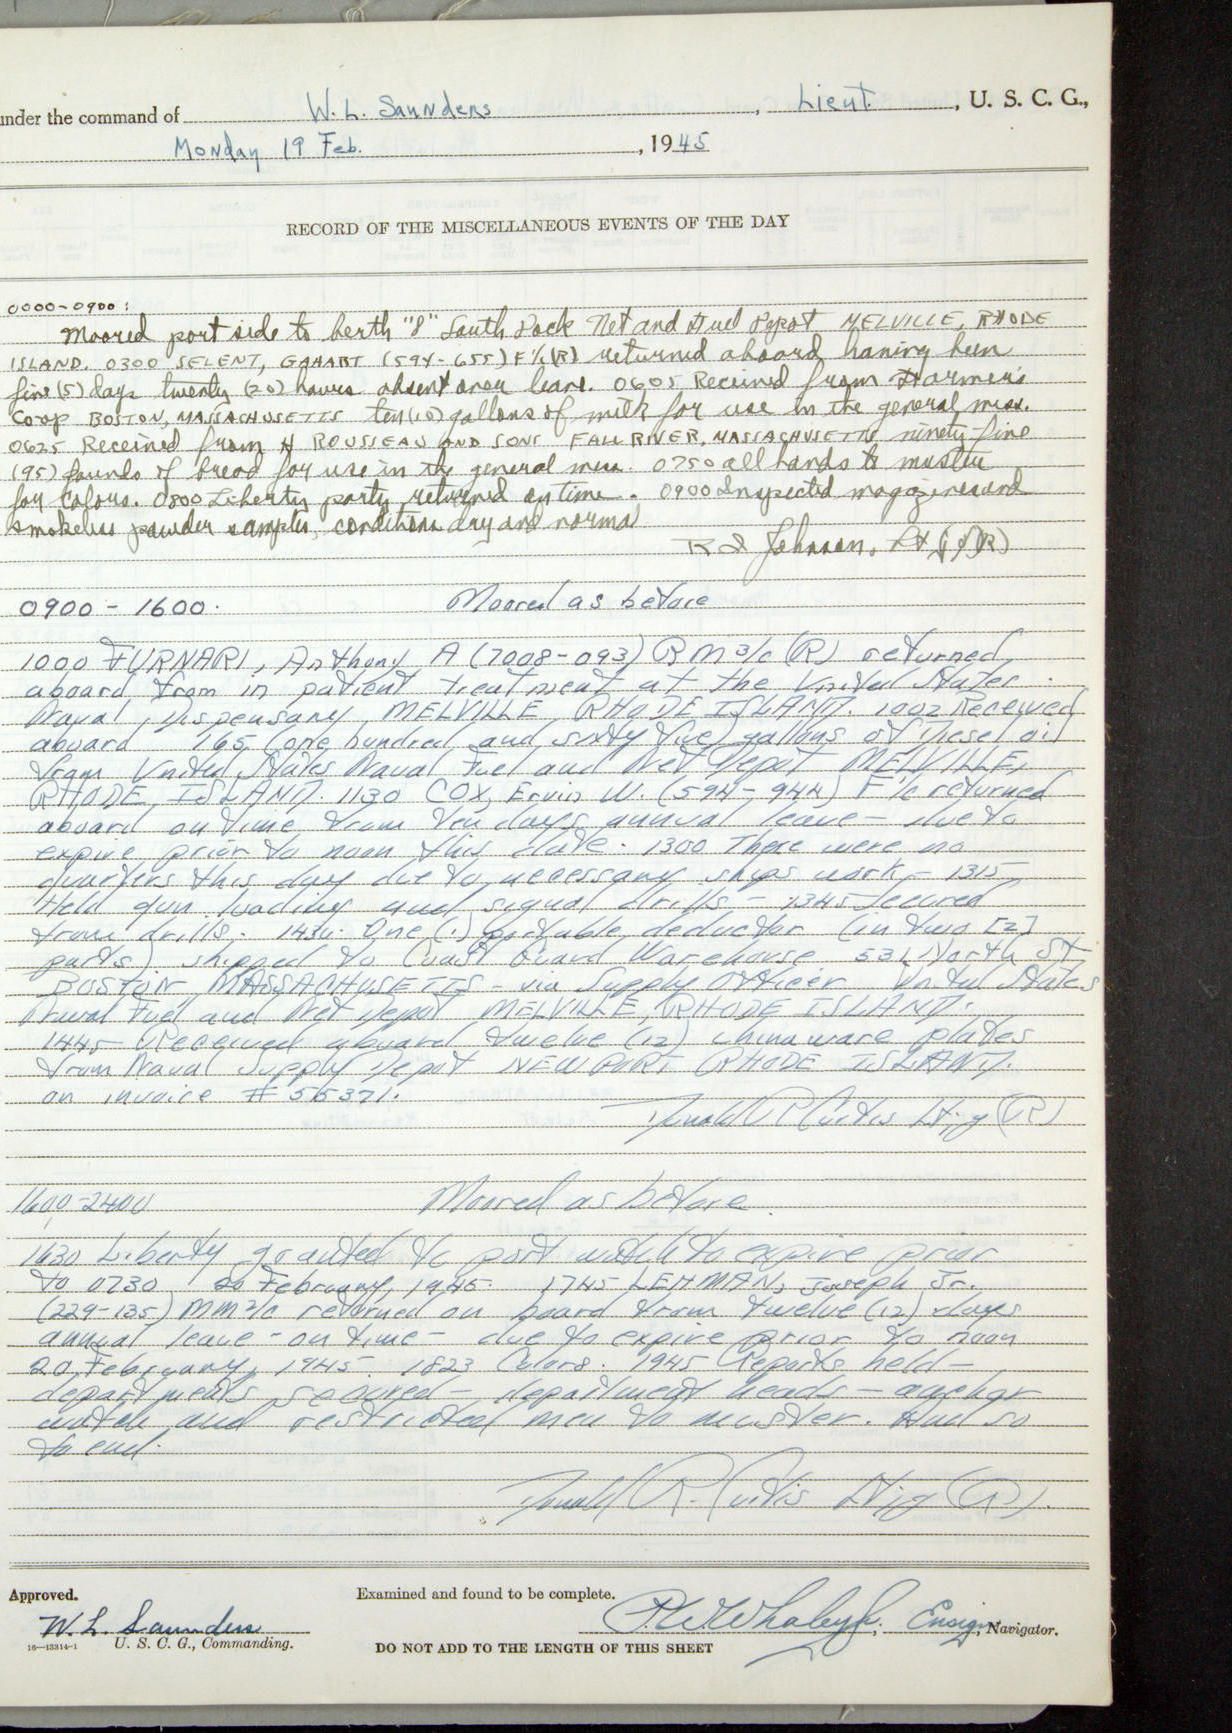 under the command of W. L. Saunders, Lieut., U. S. C. G.,
Monday 19 Feb., 1945
RECORD OF THE MISCELLANEOUS EVENTS OF THE DAY
0000-0900:
Moored port side to berth "8" South Dock Net and Fuel Depot MELVILLE, RHODE
ISLAND. 0300 SELENT, (594-655) F 1/c (R) returned aboard having been
five (5) days twenty (20) hours absent over leave. 0605 Received from Farmer's
Co-op BOSTON, MASSACHUSETTS ten (10) gallons of milk for use in the general mess.
0625 Received from A ROUSSEAU AND SONS FALL RIVER, MASSACHUSETTS, ninety-five
(95) pounds of bread for use in the general mess. 0750 all hands to muster
for Colors. 0800 Liberty party returned on time. 0900 Inspected magazines and
smokeless powder samples, conditions dry and normal
Johnson, Lt (jg) (R)
0900 - 1600. Moored as before
1000 FURNARI, Anthony A (7008-093) BM 3/c (R) returned
aboard from in patient treatment at the United States
Naval Dispensary, MELVILLE, RHODE ISLAND. 1002 Received
aboard 165 (one hundred and sixty five) gallons of Diesel oil
from United States Naval Fuel and Net Depot MELVILLE,
RHODE ISLAND. 1130 COX, Ervin W. (594-944) F 1/c returned
aboard on time from ten days annual leave - due to
expire prior to noon this date. 1300 There were no
quarters this day due to necessary ships work - 1315
Held gun loading and signal drills - 1345 Secured
from drills. 1430. One (1) portable deductor (in two [2]
parts) shipped to Coast Guard Warehouse 531 North St
BOSTON MASSACHUSETTS - via Supply Officer United States
Naval Fuel and Net Depot MELVILLE, RHODE ISLAND.
1445 Received aboard twelve (12) chinaware plates
from Naval Supply Depot NEWPORT RHODE ISLAND.
on invoice # 55371.
Donald R Curtis Lt jg (R)
1600-2400 Moored as before.
1630 Liberty granted to port watch to expire prior
to 0730 20 February, 1945. 1745 LEHMAN, Joseph Jr.
(229-135) MM 2/c returned on board from twelve (12) days
annual leave - on time - due to expire prior to noon
20 February, 1945. 1823 Colors. 1945 Reports held -
departments secured - department heads - anchor
watch and restricted men to muster. And so
to end.
Donald R. Curtis Lt jg (R).
Approved. Examined and found to be complete.
W. L. Saunders P. W. Whaley Jr., Ensign, Navigator.
16-13314-1 U. S. C. G., Commanding.
DO NOT ADD TO THE LENGTH OF THIS SHEET